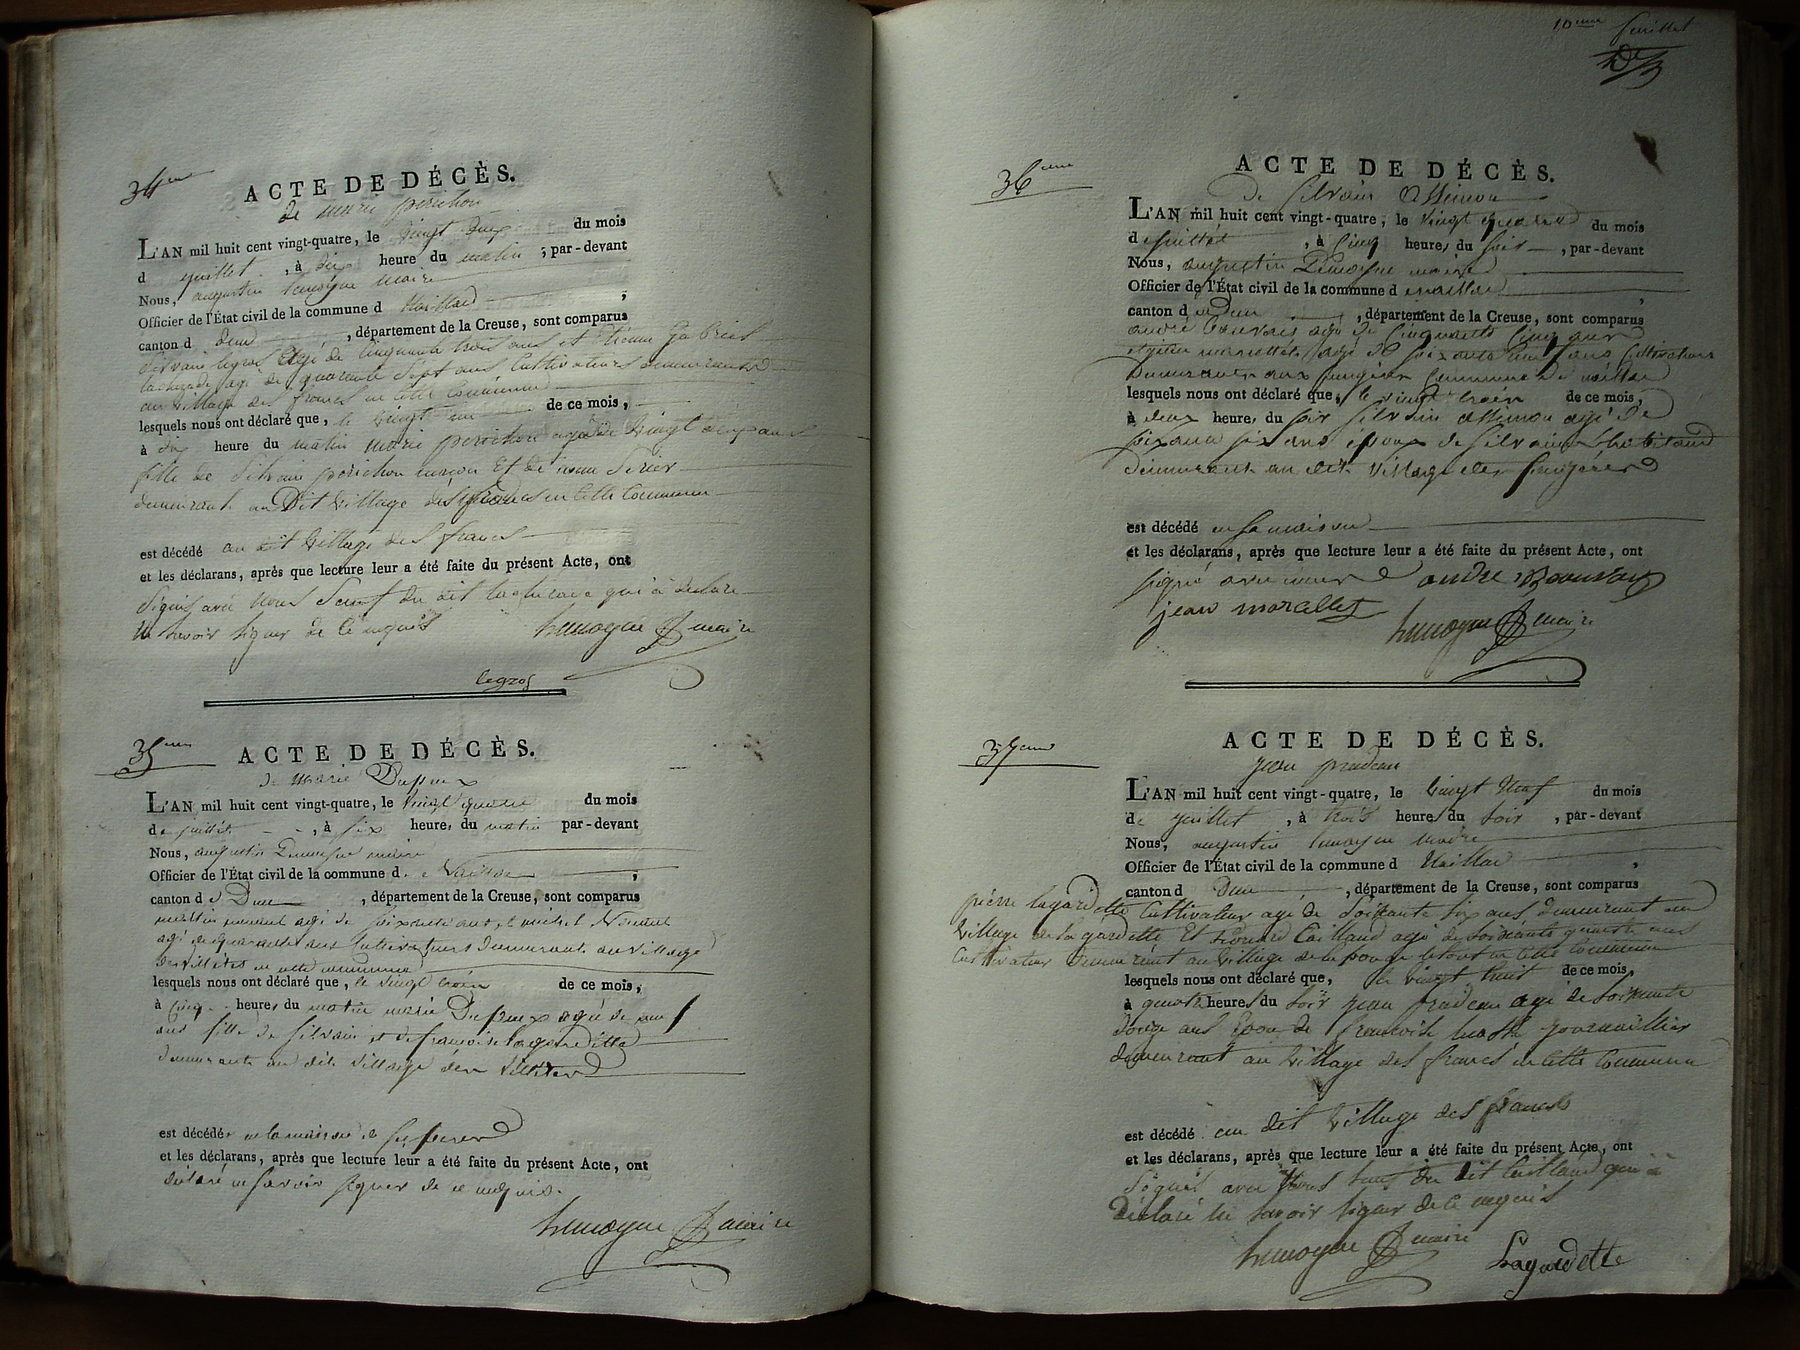 34eme
ACTE DE DÉCÈS.
de marie perichon
L'AN mil huit cent vingt-quatre, le vingt deux du mois
d juillet, à dix heure du matin ; par-devant
Nous, augustin lemoyne maire
Officier de l'État civil de la commune d Naillad ;
canton d dun, département de la Creuse, sont comparus
silvain legros agé de cinquante trois ans et Etienne gabriel
lachezade agé de quarante sept ans cultivateurs demeurants
au village des francs en cette commune
lesquels nous ont déclaré que, le vingt un de ce mois,
à dix heure du matin marie perichon agé de vingt deux ans
fille de silvain perichon maçon Et de
demeurante au Dit village des francs en cette commune
est décédé au dit village des francs
et les déclarans, après que lecture leur a été faite du présent Acte, ont
signés avec nous Sauf du dit lachezade qui à declaré
ne savoir signer de ce enquis lemoyne maire
legros
35eme
ACTE DE DÉCÈS.
de marie Dupeux
L'AN mil huit cent vingt-quatre, le vingt quatre du mois
de juillet, à six heure, du matin par-devant
Nous, augustin Lemoyne maire
Officier de l'État civil de la commune d. Naillac ;
canton d Dun, département de la Creuse, sont comparus
agé de soixante ans et michel
agé de quarante ans cultivateurs demeurant au village
en cette commune
lesquels nous ont déclaré que, le vingt trois de ce mois,
à cinq heure, du matin marie Dupeux agée de neuf
ans fille de silvain et de francoise lagardette
demeurante au dit village
est décédé en la maison de ses peres
et les déclarans, après que lecture leur a été faite du présent Acte, ont
déclaré ne savoir signer de ce enquis.
lemoyne maire
10eme feuillet
36eme
ACTE DE DÉCÈS.
de silvain assimou
L'AN mil huit cent vingt-quatre, le vingt quatre du mois
d juillet, à cinq heure, du soir, par-devant
Nous, augustin Lemoyne maire
Officier de l'État civil de la commune d naillac ,
canton d dun, département de la Creuse, sont comparus
andré bouvais agé de cinquante cinq ans
agé de soixante ans cultivateurs
demeurant aux fougères commune de naillac
lesquels nous ont déclaré que, le vingt trois de ce mois,
à deux heure, du soir silvain assimou agé de
soixante six ans epoux de silvaine
demeurant au dit village des fougères
est décédé en sa maison
et les déclarans, après que lecture leur a été faite du présent Acte, ont
signé avec nous andre Bouvais
jean marellet lemoyne maire
37eme
ACTE DE DÉCÈS.
jean pradeau
L'AN mil huit cent vingt-quatre, le vingt neuf du mois
de juillet, à trois heure, du soir, par-devant
Nous, augustin lemoyne maire
Officier de l'État civil de la commune d Naillac ,
canton d Dun, département de la Creuse, sont comparus
pierre lagardette cultivateur agé de soixante six ans demeurant au
village de la gardette Et léonard Caillaud agé de soixante quatre ans
cultivateur demeurant au village de la en cette commune
lesquels nous ont déclaré que, le vingt huit de ce mois,
à quatre heures du soir jean pradeau agé de soixante
douze ans Epoux de francoise journaillier
demeurant au village des francs en cette commune
est décédé au dit village des francs
et les déclarans, après que lecture leur a été faite du présent Acte, ont
signés avec Nous sauf du dit Caillaud qui a
Déclaré ne savoir signer de ce enquis
lemoyne maire Lagardette